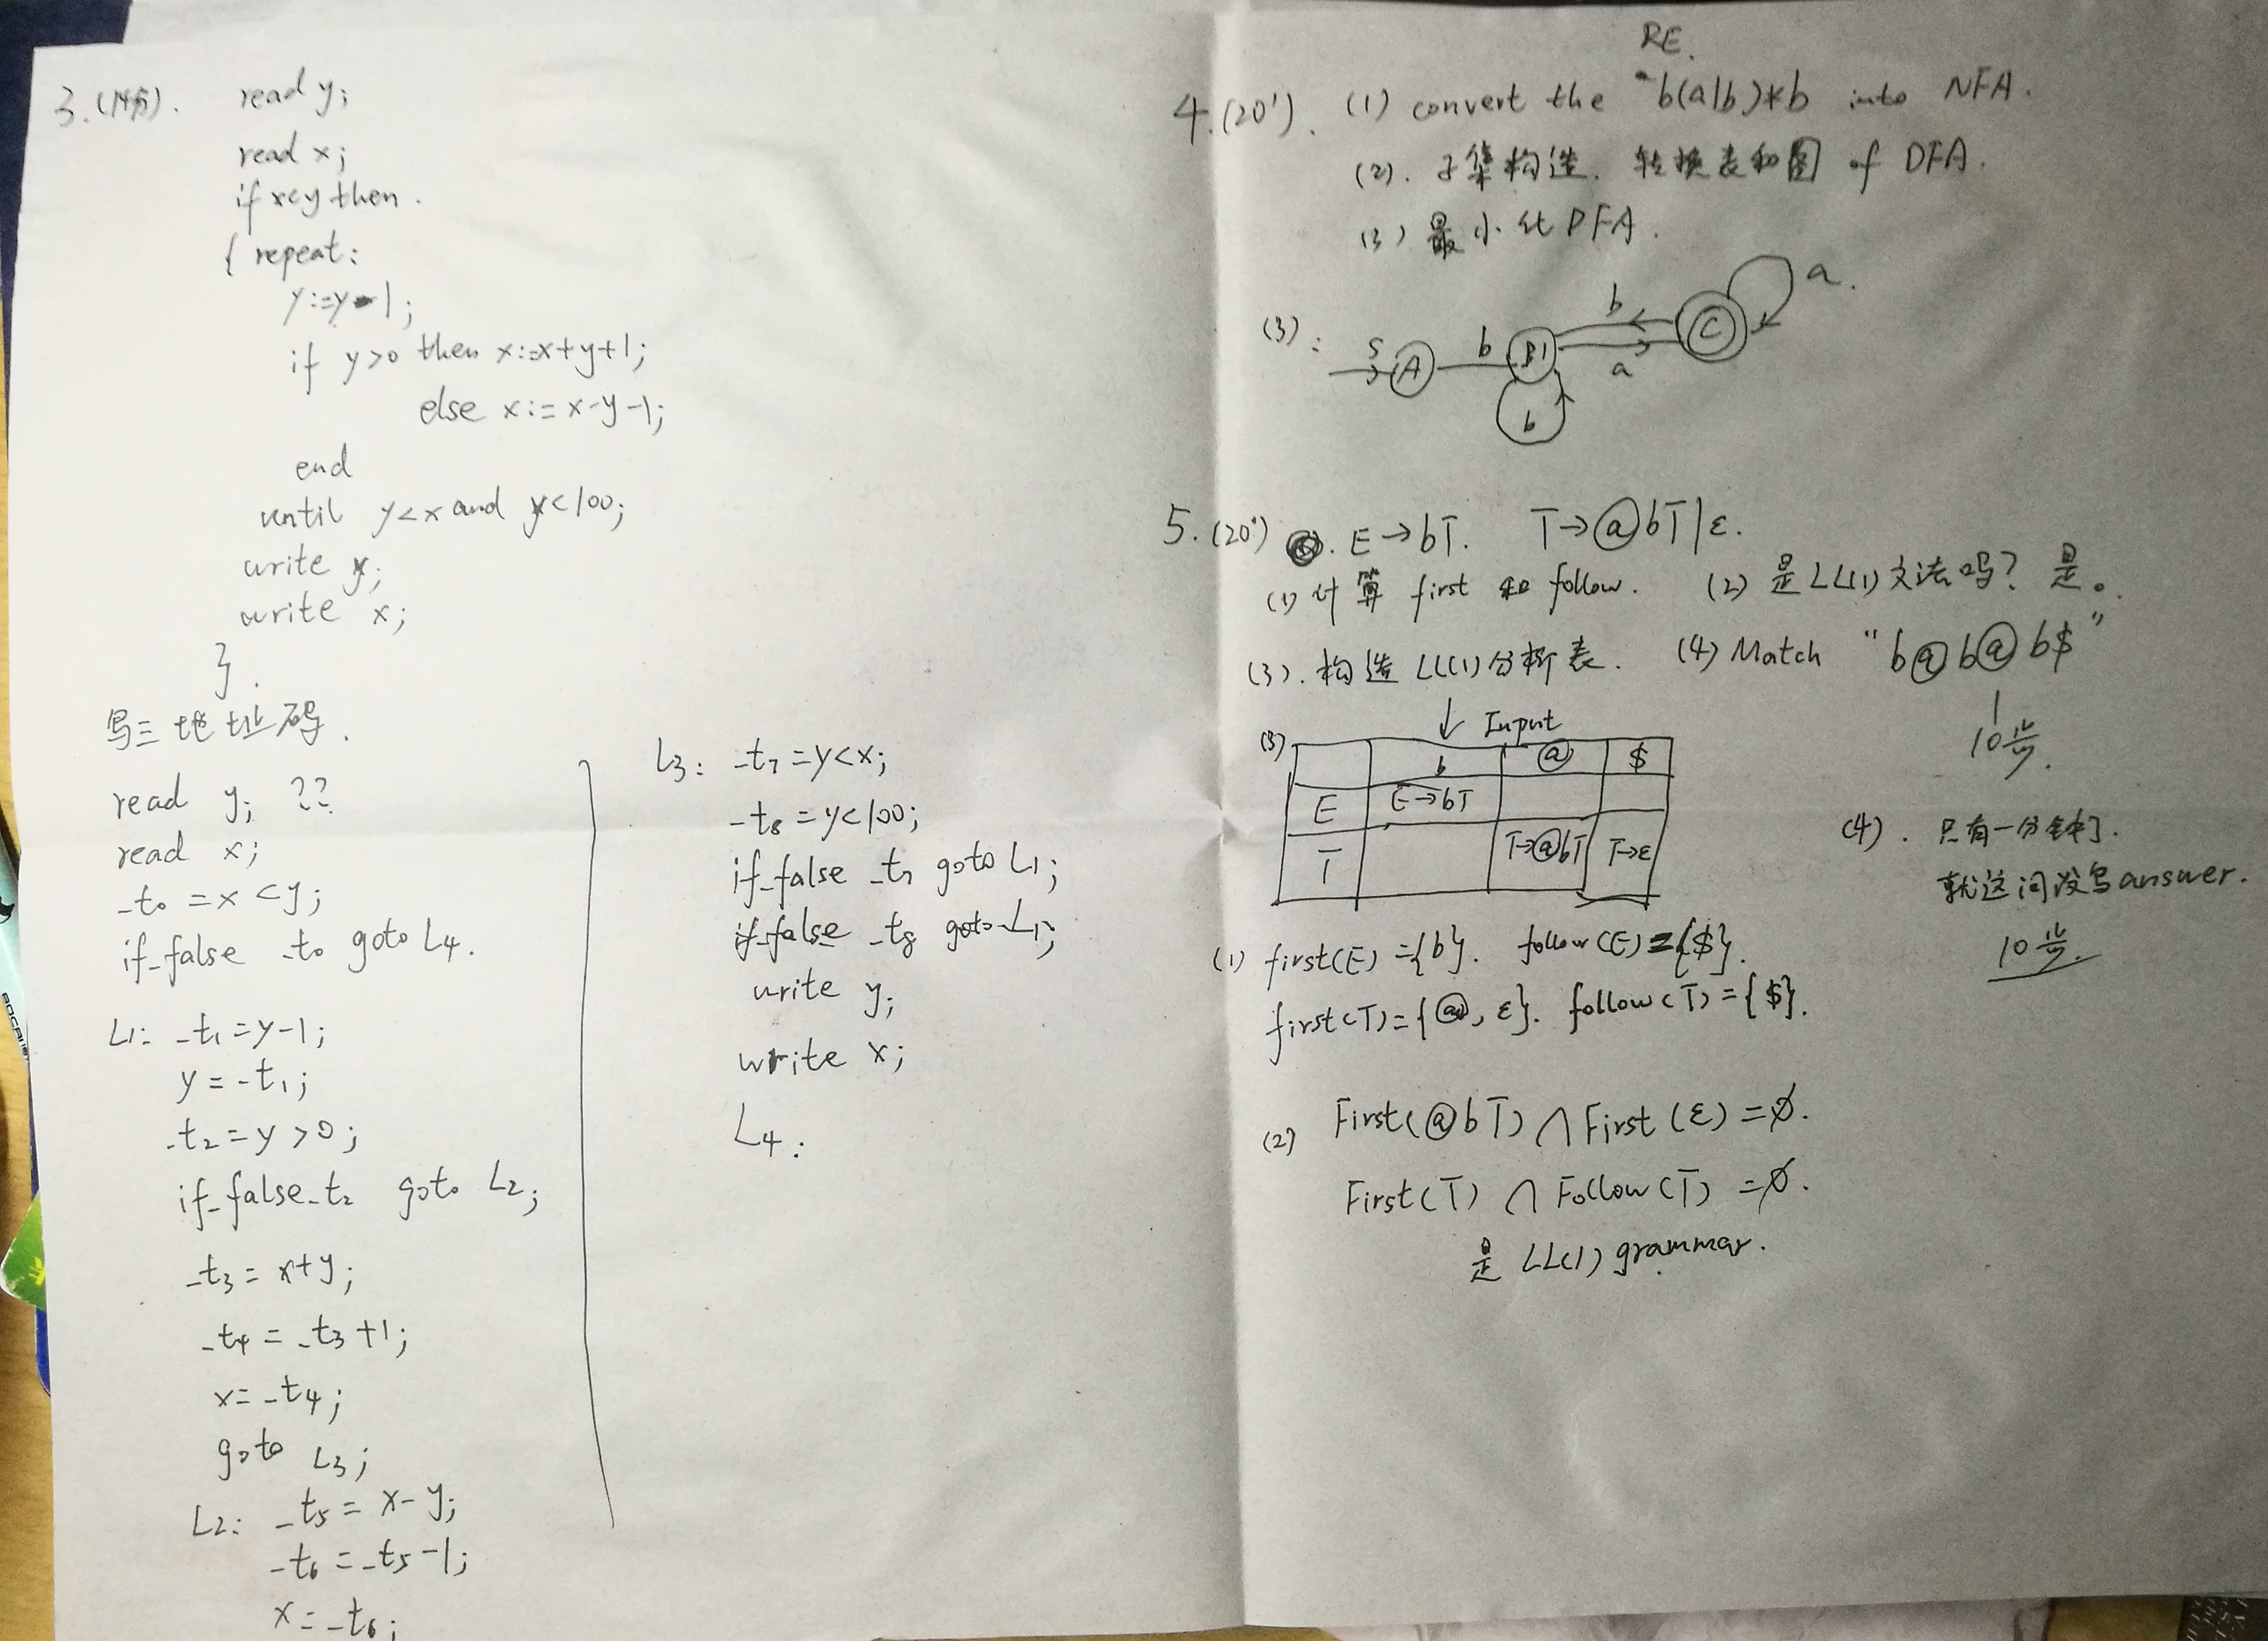 3.(14分). read y;
read x;
if x<y then.
{ repeat:
y:=y-1;
if y>0 then x:=x+y+1;
else x:=x-y-1;
end
until y<x and y<100;
write y;
write x;
}.
写三地址码.
read y; ??
read x;
_t0 = x<y;
if_false _t0 goto L4.
L1: _t1=y-1;
y=_t1;
_t2=y>0;
if_false_t2 goto L2;
_t3=x+y;
_t4=_t3+1;
x=_t4;
goto L3;
L2: _t5=x-y;
_t6=_t5-1;
x=_t6;
L3: _t7=y<x;
_t8=y<100;
if_false _t7 goto L1;
if_false _t8 goto L1;
write y;
write x;
L4:
RE.
4.(20'). (1) convert the b(a|b)*b into NFA.
(2). 子集构造. 转换表和图 of DFA.
(3) 最小化DFA.
(3): S A b B1 b a C a.
b
5.(20') E→bT. T→@bT|ε.
(1) 计算 first 和 follow. (2) 是LL(1)文法吗? 是。
(3). 构造LL(1)分析表. (4) Match "b@b@b$"
10分.
(3) ↓ Input
b @ $
E E→bT
T T→@bT T→ε
(4). 只有一分钟了.
就这问没写answer.
10分.
(1) first(E)={b}. follow(E)={$}.
first(T)={@, ε}. follow(T)={$}.
(2) First(@bT)∩First(ε)=∅.
First(T)∩Follow(T)=∅.
是LL(1) grammar.